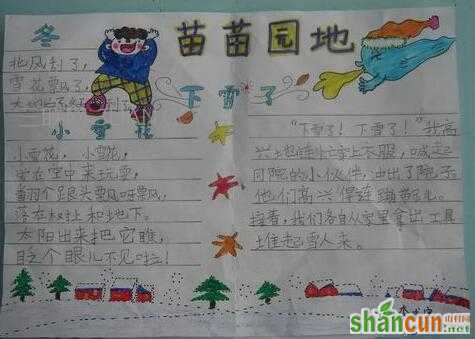 苗苗园地
冬
北风刮了，
雪花飘了，
下雪了
小雪花
小雪花，小雪花，
空中来玩耍，
翻个跟头飘呀飘，
落在树上和地下。
太阳出来把它瞧，
眨个眼儿不见啦！
"下雪了！下雪了！"我高
兴地穿上衣服，喊起
院的小伙伴，冲出了院子
他们高兴得
接着，我们各自从家里拿出工具
堆起雪人来。
shancun